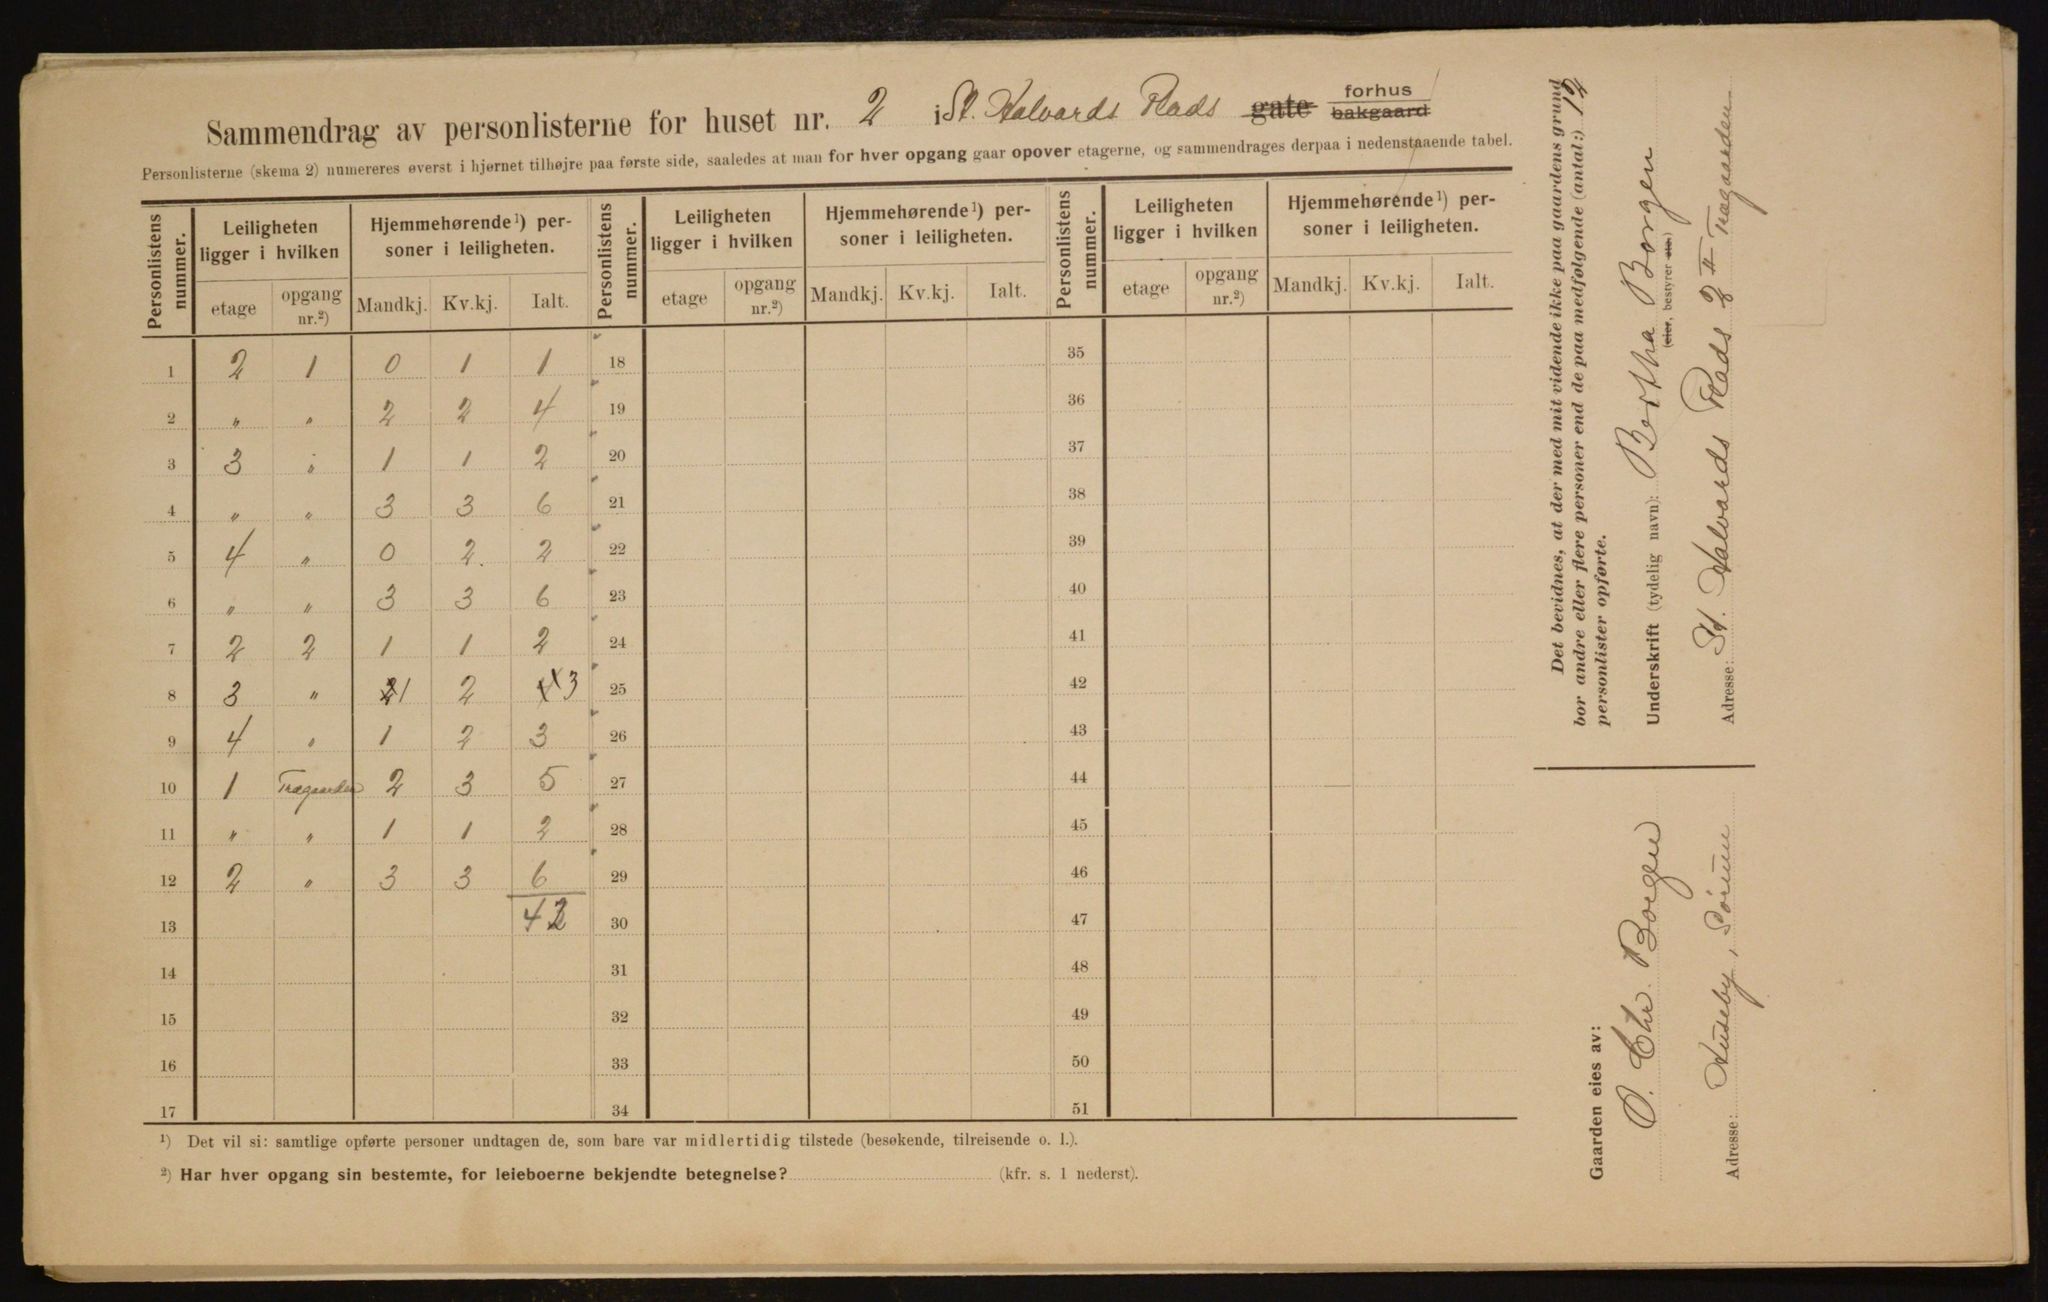 Sammendrag av personlisterne for huset nr. 2 i St. Halvards Plads gate forhus bakgaard
Personlisterne (skema 2) numereres øverst i hjørnet tilhøjre paa første side, saaledes at man for hver opgang gaar opover etagerne, og sammendrages derpaa i nedenstaaende tabel.
Personlistens nummer. Leiligheten ligger i hvilken Hjemmehørende ¹) personer i leiligheten. Personlistens nummer. Leiligheten ligger i hvilken Hjemmehørende ¹) personer i leiligheten. Personlistens nummer. Leiligheten ligger i hvilken Hjemmehørende ¹) personer i leiligheten.
etage opgang nr.²) Mandkj. Kv.kj. Ialt. etage opgang nr.²) Mandkj. Kv.kj. Ialt. etage opgang nr.²) Mandkj. Kv.kj. Ialt.
1 2 1 0 1 1 18 35
2 " " 2 2 4 19 36
3 3 " 1 1 2 20 37
4 " " 3 3 6 21 38
5 4 " 0 2 2 22 39
6 " " 3 3 6 23 40
7 2 2 1 1 2 24 41
8 3 " 1 2 3 25 42
9 4 " 1 2 3 26 43
10 1 Trægaarden 2 3 5 27 44
11 " " 1 1 2 28 45
12 2 " 3 3 6 29 46
13 42 30 47
14 31 48
15 32 49
16 33 50
17 34 51
¹) Det vil si: samtlige opførte personer undtagen de, som bare var midlertidig tilstede (besøkende, tilreisende o. l.).
²) Har hver opgang sin bestemte, for leieboerne bekjendte betegnelse? (kfr. s. 1 nederst).
Det bevidnes, at der med mit vidende ikke paa gaardens grund
bor andre eller flere personer end de paa medfølgende (antal:) 12
personlister opførte.
Underskrift (tydelig navn): Bertha Borgen
(eier, bestyrer etc.)
Adresse: St. Halvards Plads 2 II Trægaarden
Gaarden eies av:
O. Chr. Borgen
Adresse: Huseby, Sørum